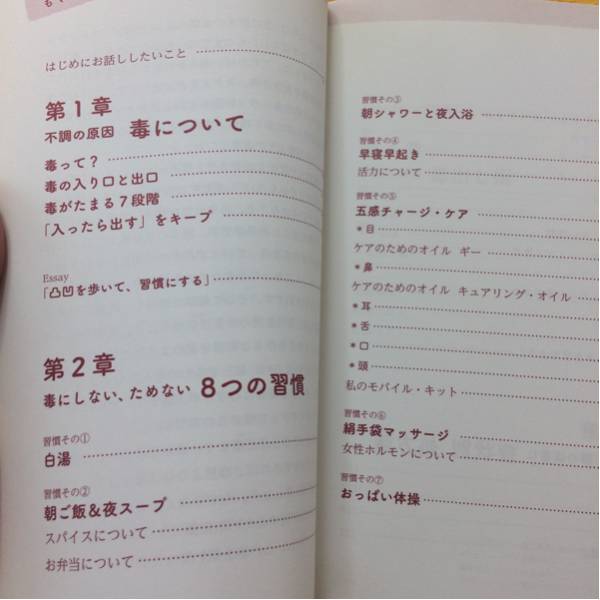 はじめにお話ししたいこと
第1章
不調の原因 毒について
毒って?
毒の入り口と出口
毒がたまる7段階
「入ったら出す」をキープ
Essay
「凸凹を歩いて、習慣にする」
第2章
毒にしない、ためない 8つの習慣
習慣その①
白湯
習慣その②
朝ご飯&夜スープ
スパイスについて
お弁当について
習慣その③
朝シャワーと夜入浴
習慣その④
早寝早起き
活力について
習慣その⑤
五感チャージ・ケア
*目
ケアのためのオイル ギー
*鼻
ケアのためのオイル キュアリング・オイル
*耳
*舌
*口
*頭
私のモバイル・キット
習慣その⑥
絹手袋マッサージ
女性ホルモンについて
習慣その⑦
おっぱい体操